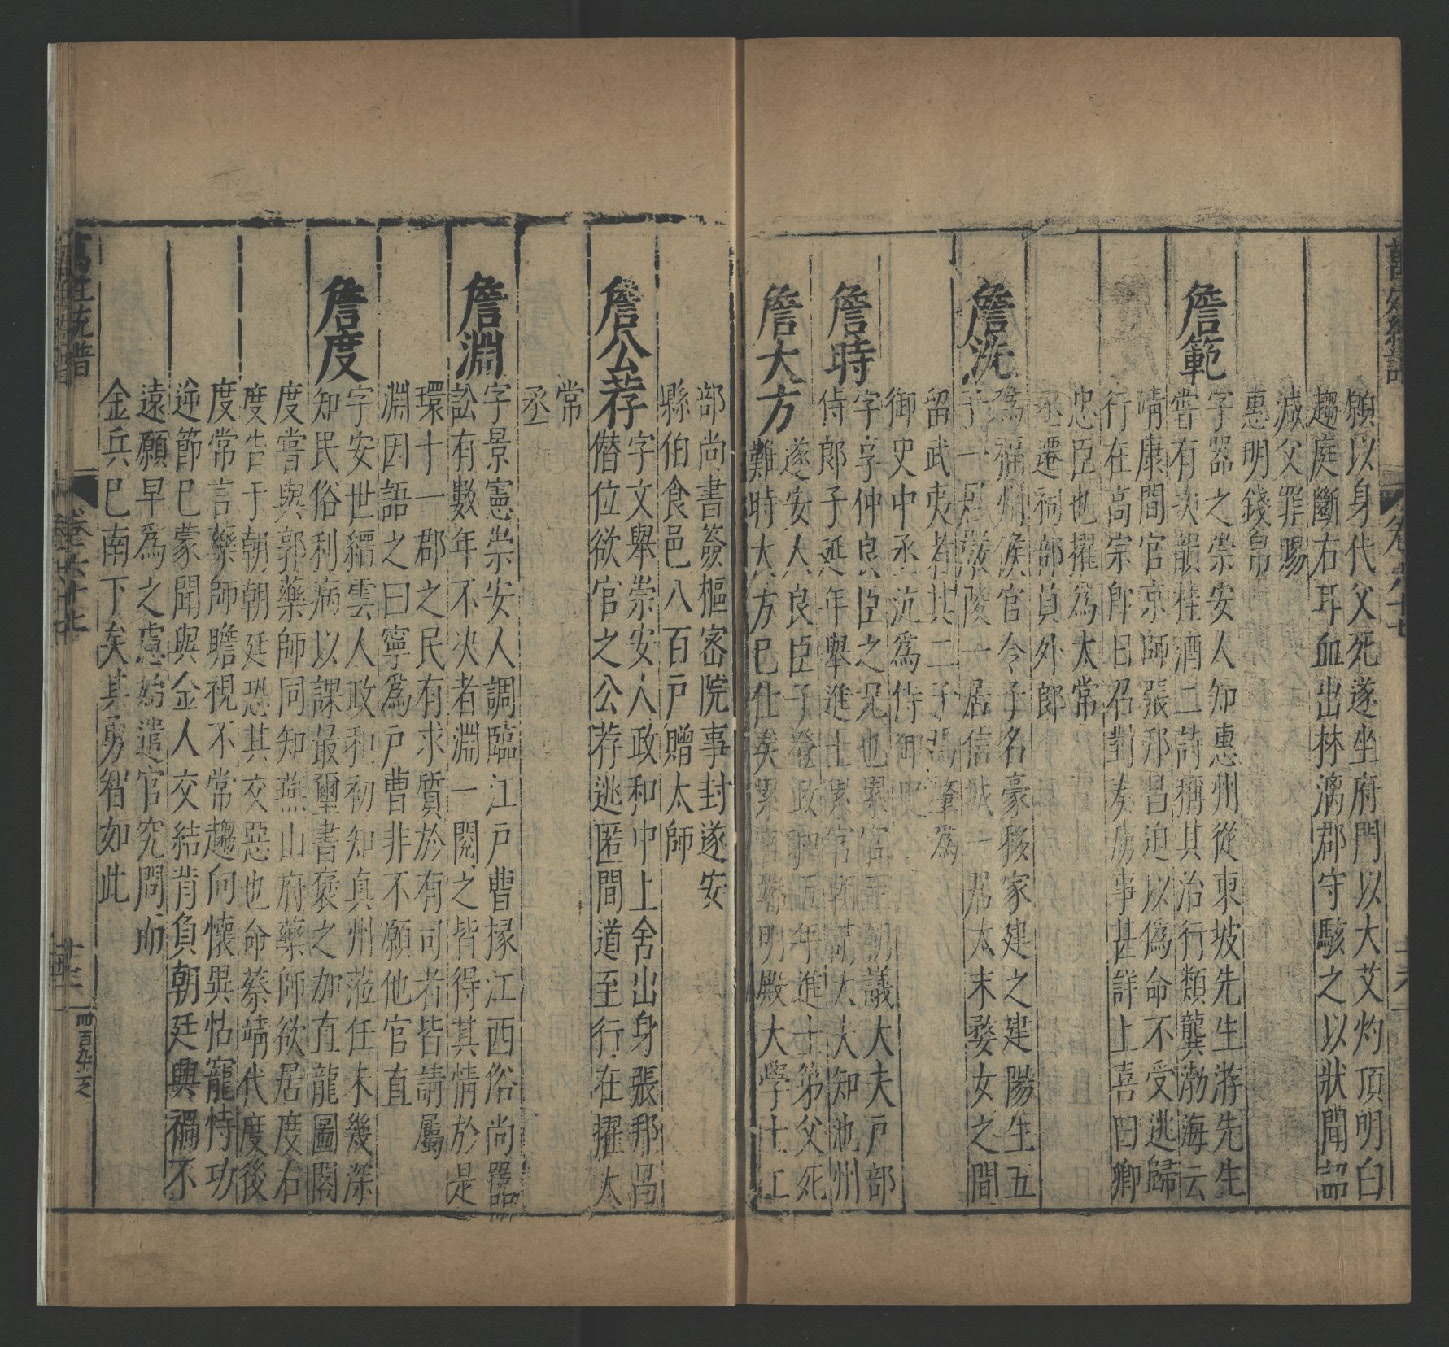 願以身代父死遂坐府門以大艾灼頂明白
趨庭斷右耳血出林漓郡守駭之以狀聞詔
減父罪賜
惠明錢帛
詹範
字器之崇安人知惠州從東坡先生游先生
嘗有次韻桂酒二詩稱其治行類龔渤海云
靖康間官京師張邦昌迫以偽命不受逃歸
行在高宗即日召對奏勵事甚詳上喜曰卿
忠臣也擢為太常
丞遷祠部員外郎
詹
為福州候官令子名豪移家建之建陽生五
子一居嚴陵一居信城一居太末婺女之間
留武夷者其二子
御史中丞沆為侍御史
詹時
字享仲良臣之兄也累官至朝議大夫戶部
侍郎子延年舉進士累官朝請大夫知池州
詹大方
遂安人良臣子登政和五年進士第父死
難時大方已仕矣累官端明殿大學士工
部尚書簽樞密院事封遂安
縣伯食邑八百戶贈太師
詹公荐
字文舉崇安人政和中上舍出身張邦昌
僭位欲官之公荐逃匿間道至行在擢太
常
丞
詹淵
字景憲崇安人調臨江戶曹掾江西俗尚嚚
訟有數年不決者淵一閱之皆得其情於是
環十一郡之民有求質於有司者皆請屬
淵因語之曰寧為戶曹非不願他官直
詹度
字安世縉雲人政和初知真州蒞任未幾深
知民俗利病以課最璽書褒之加直龍圖閣
度嘗與郭藥師同知燕山府藥師欲居度右
度告于朝朝廷恐其交惡也命蔡靖代度後
度常言藥師瞻視不常趨向懷異怙寵恃功
逆節已蒙聞與金人交結背負朝廷興禍不
遠願早為之慮始遣官究問而
金兵已南下矣其勇智如此
萬姓統譜
卷之六十七